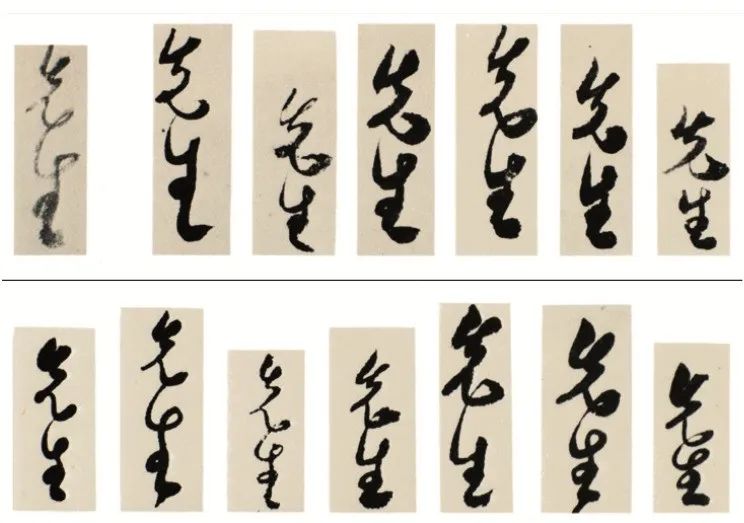 先生
先生
先生
先生
先生
先生
先生
先生
先生
先生
先生
先生
先生
先生